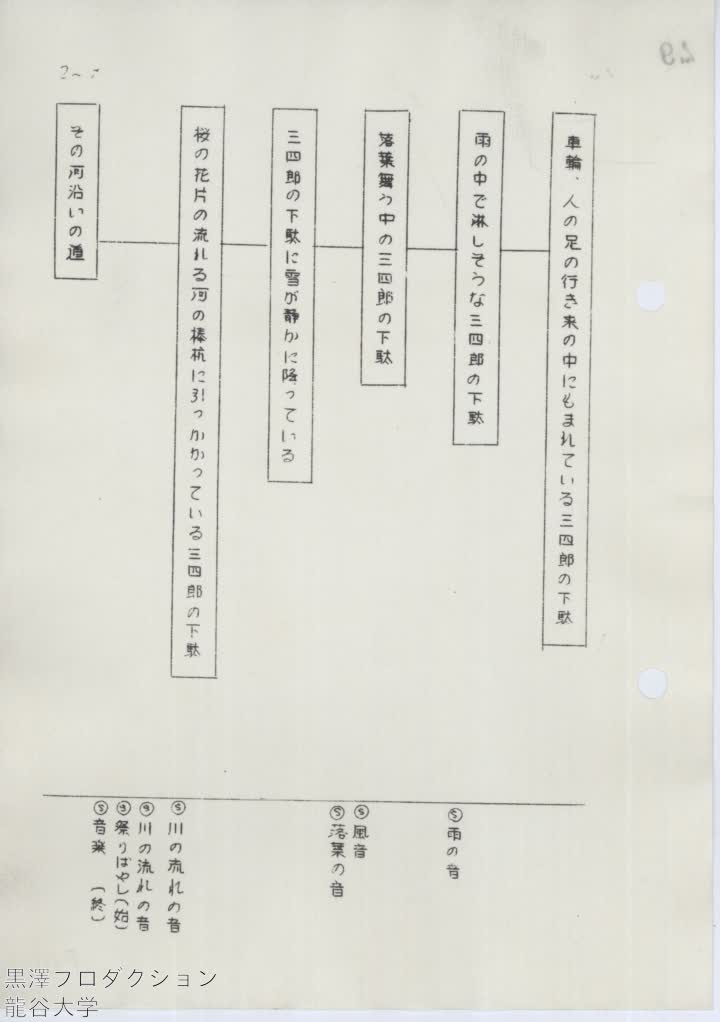 車輪、人の足の行き来の中にもまれている三四郎の下駄
雨の中で淋しそうな三四郎の下駄
落葉舞う中の三四郎の下駄
三四郎の下駄に雪が静かに降っている
桜の花片の流れる河の棒杭に引っかかっている三四郎の下駄
その河沿いの道
Ⓢ雨の音
Ⓢ風音
Ⓢ落葉の音
Ⓢ川の流れの音
Ⓢ川の流れの音
Ⓢ祭りばやし(始)
Ⓢ音楽 (終)
黒澤プロダクション
龍谷大学